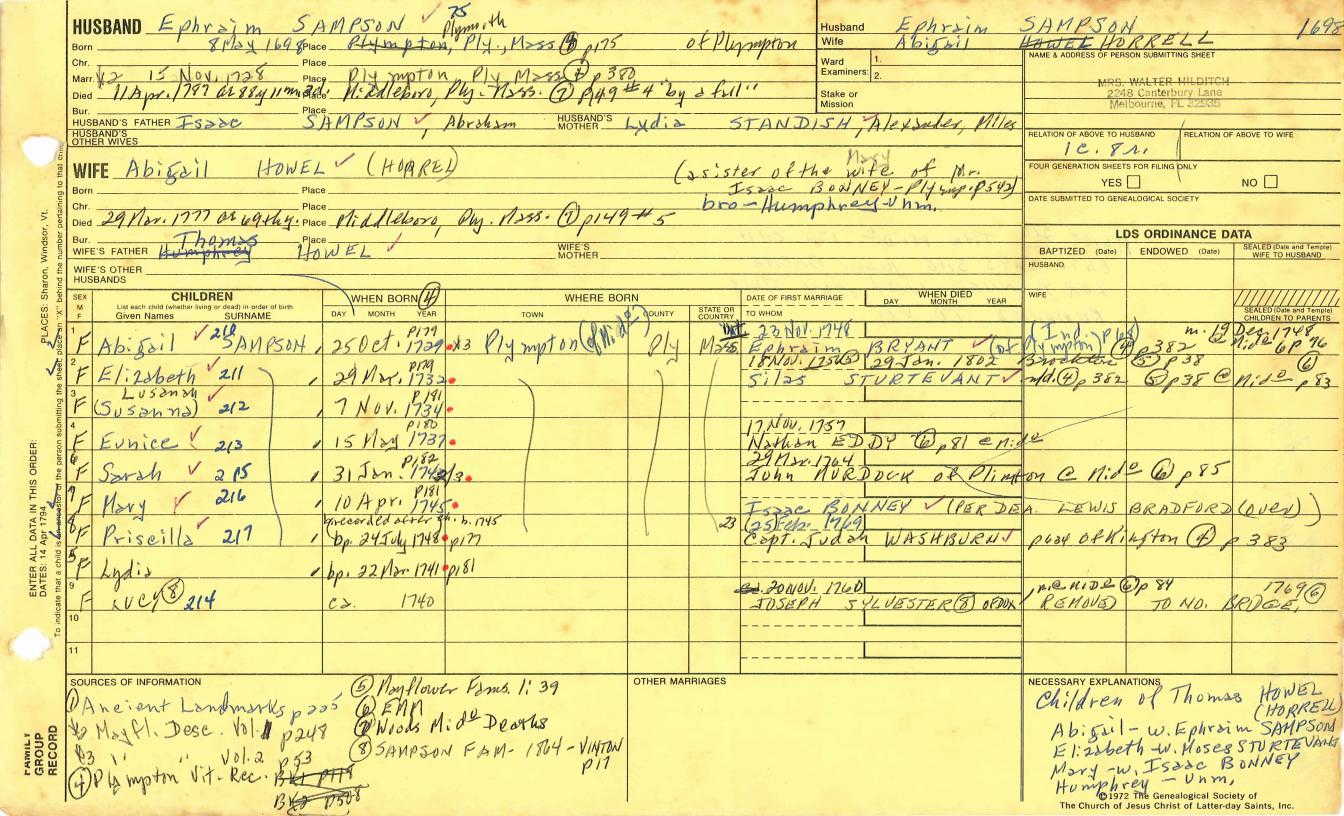 HUSBAND Ephraim SAMPSON 75
Born 8 May 1698 Place Plympton, Ply., Mass Plymouth p175 of Plympton
Chr. Place
Marr. 15 Nov. 1728 Place Plympton Ply. Mass (4) p380
Died 11 Apr. 1787 Place Middleboro, Ply. Mass. (7) p149 #4 "by a full"
Bur. Place
HUSBAND'S FATHER Isaac SAMPSON, Abraham HUSBAND'S MOTHER Lydia STANDISH, Alexander, Miles
HUSBAND'S OTHER WIVES
WIFE Abigail HOWEL (HORREL) (a sister of the wife of Mr.
Mary
Isaac BONNEY - Plymp. p542)
bro - Humphrey - Unm.
Born Place
Chr. Place
Died 29 Mar. 1777 as 69thy. Place Middleboro, Ply. Mass. (7) p149 #5
Bur. Place
WIFE'S FATHER Humphrey Thomas HOWEL WIFE'S MOTHER
WIFE'S OTHER HUSBANDS
Husband Ephraim SAMPSON 1698
Wife Abigail HOWEL HORRELL
Ward Examiners: 1. 2.
Stake or Mission
NAME & ADDRESS OF PERSON SUBMITTING SHEET
MRS. WALTER HILDITCH
2248 Canterbury Lane
Melbourne, FL 32935
RELATION OF ABOVE TO HUSBAND RELATION OF ABOVE TO WIFE
1c. 8r.
FOUR GENERATION SHEETS FOR FILING ONLY
YES NO
DATE SUBMITTED TO GENEALOGICAL SOCIETY
LDS ORDINANCE DATA
BAPTIZED (Date) ENDOWED (Date) SEALED (Date and Temple) WIFE TO HUSBAND
HUSBAND
WIFE
SEALED (Date and Temple) CHILDREN TO PARENTS
SEX M F
CHILDREN
List each child (whether living or dead) in order of birth
Given Names SURNAME
WHEN BORN (4)
DAY MONTH YEAR
WHERE BORN
TOWN COUNTY STATE OR COUNTRY
DATE OF FIRST MARRIAGE
TO WHOM
WHEN DIED
DAY MONTH YEAR
1 F Abigail 210 SAMPSON 25 Oct. 1729 p179 Plympton (Mido) Ply Mass Int. 23 Nov. 1748 Ephraim BRYANT (of Plympton) (4) p382 m. 19 Dec. 1748 @ Mido 6 p76
2 F Elizabeth 211 29 Mar. 1732 p179 18 Nov. 29 Jan. 1802 (5) p38 Silas STURTEVANT (4) p382 (5) p38 @ Mido (6) p83
3 F Lusanah (Susanna) 212 7 Nov. 1734 p181
4 F Eunice 213 15 May 1737 p180 17 Nov. 1757 Nathan EDDY (6) p81 @ Mido
6 F Sarah 215 31 Jan. 1742/3 p182 29 Mar. 1764 John MURDOCK of Plimton @ Mido (6) p85
7 F Mary 216 10 Apr. 1745 p181 Isaac BONNEY (PER DEA. LEWIS BRADFORD (over))
8 F Priscilla 217 bp. 24 July 1748 p177 23 (25 Feb. 1769) Capt. Judah WASHBURN of Kington (4) p383
5 F Lydia bp. 22 Mar. 1741 p181
9 F LUCY (8) 214 ca. 1740 20 NOV. 1760 JOSEPH SYLVESTER (8) OF DUX m @ MIDO (6) p84 1769 (6) REMOVED TO NO. BRIDGE.
10
11
SOURCES OF INFORMATION
(1) Ancient Landmarks p225
Mayfl. Desc. Vol. 1 p248
3 " " Vol. 2 p53
(4) Plympton Vit. Rec.
(5) Mayflower Fams. 1: 39
(6) EMM
(7) Woods Mido Deaths
(8) SAMPSON FAM - 1864 - VINTON p17
OTHER MARRIAGES
NECESSARY EXPLANATIONS
Children of Thomas HOWEL (HORRELL)
Abigail - w. Ephraim SAMPSON
Elizabeth - w. Moses STURTEVANT
Mary - w. Isaac BONNEY
Humphrey - Unm.
©1972 The Genealogical Society of
The Church of Jesus Christ of Latter-day Saints, Inc.
ENTER ALL DATA IN THIS ORDER:
DATES: 14 Apr 1794 PLACES: Sharon, Windsor, Vt.
FAMILY GROUP RECORD